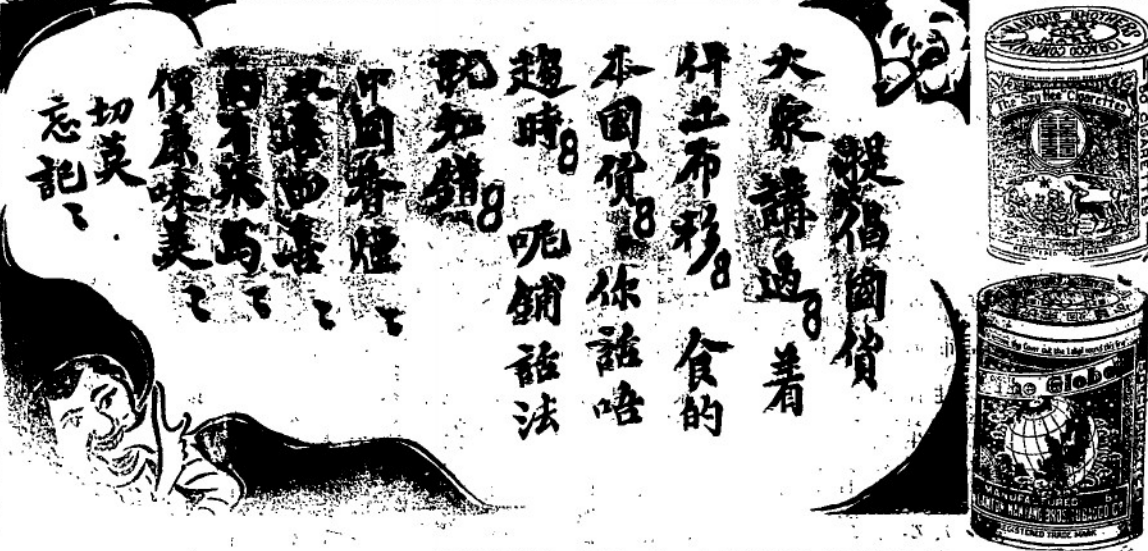 提倡國貨
大家講過8 着
件土布衫8 食的
本國貨8 你話唔
趨時8 呢鋪話法
知錯8
中国香煙
喜四喜
價廉味美
切莫
忘記
NANYANG BROTHERS
TOBACCO COMPANY
The Szy Hee Cigarettes
REGISTERED TRADE MARK
The Globe
MANUFACTURED BY
NANYANG BROS. TOBACCO CO
REGISTERED TRADE MARK